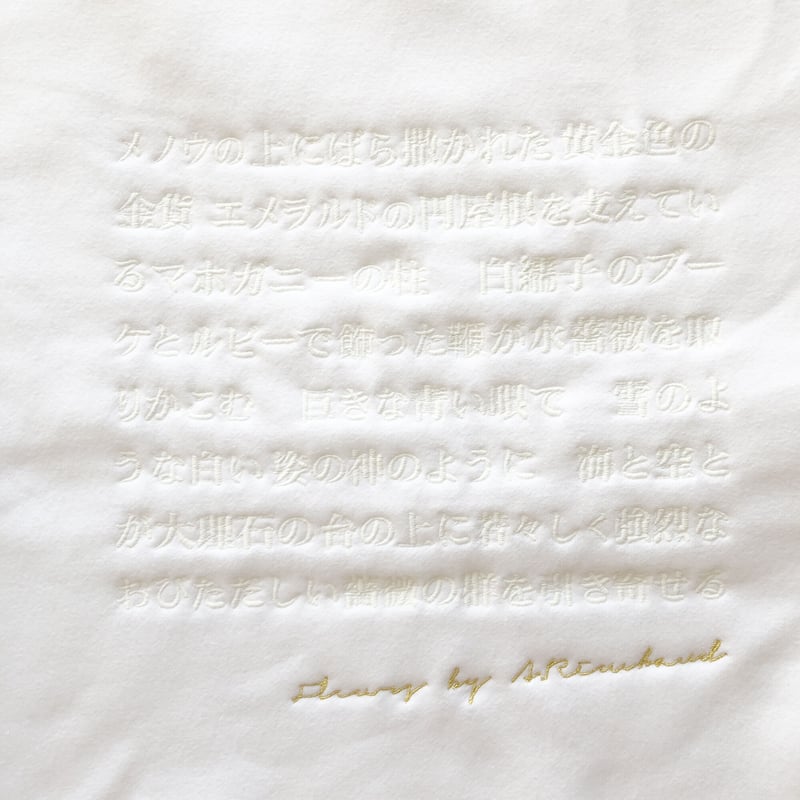 メノウの上にばら撒かれた黄金色の
金貨 エメラルドの円屋根を支えてい
るマホガニーの柱　白繻子のブー
ケとルビーで飾った鞭が水薔薇を取
りかこむ　巨きな青い眼て　雪のよ
うな白い姿の神のように　海と空と
が大理石の台の上に若々しく強烈な
おびただしい薔薇の群を引き寄せる
by A.Rimbaud